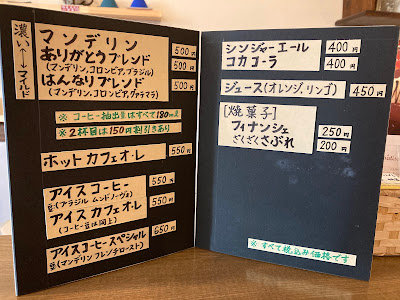 濃い ↔ マイルド
マンデリン 500円
ありがとうブレンド 500円
(マンデリン、コロンビア、ブラジル)
はんなりブレンド 500円
(マンデリン、コロンビア、グァテマラ)
※ コーヒー抽出量はすべて180cc
※ 2杯目は150円割引きあり
ホットカフェオ・レ 550円
アイスコーヒー 550円
豆(ブラジル ムンドノーヴォ)
アイスカフェオ・レ 550円
(コーヒー豆は同上)
アイスコーヒースペシャル 650円
豆(マンデリン フレンチロースト)
ジンジャーエール 400円
コカコーラ 400円
ジュース(オレンジ、リンゴ) 450円
[焼菓子]
フィナンシェ 250円
ざくざくさぶれ 200円
※すべて税込み価格です